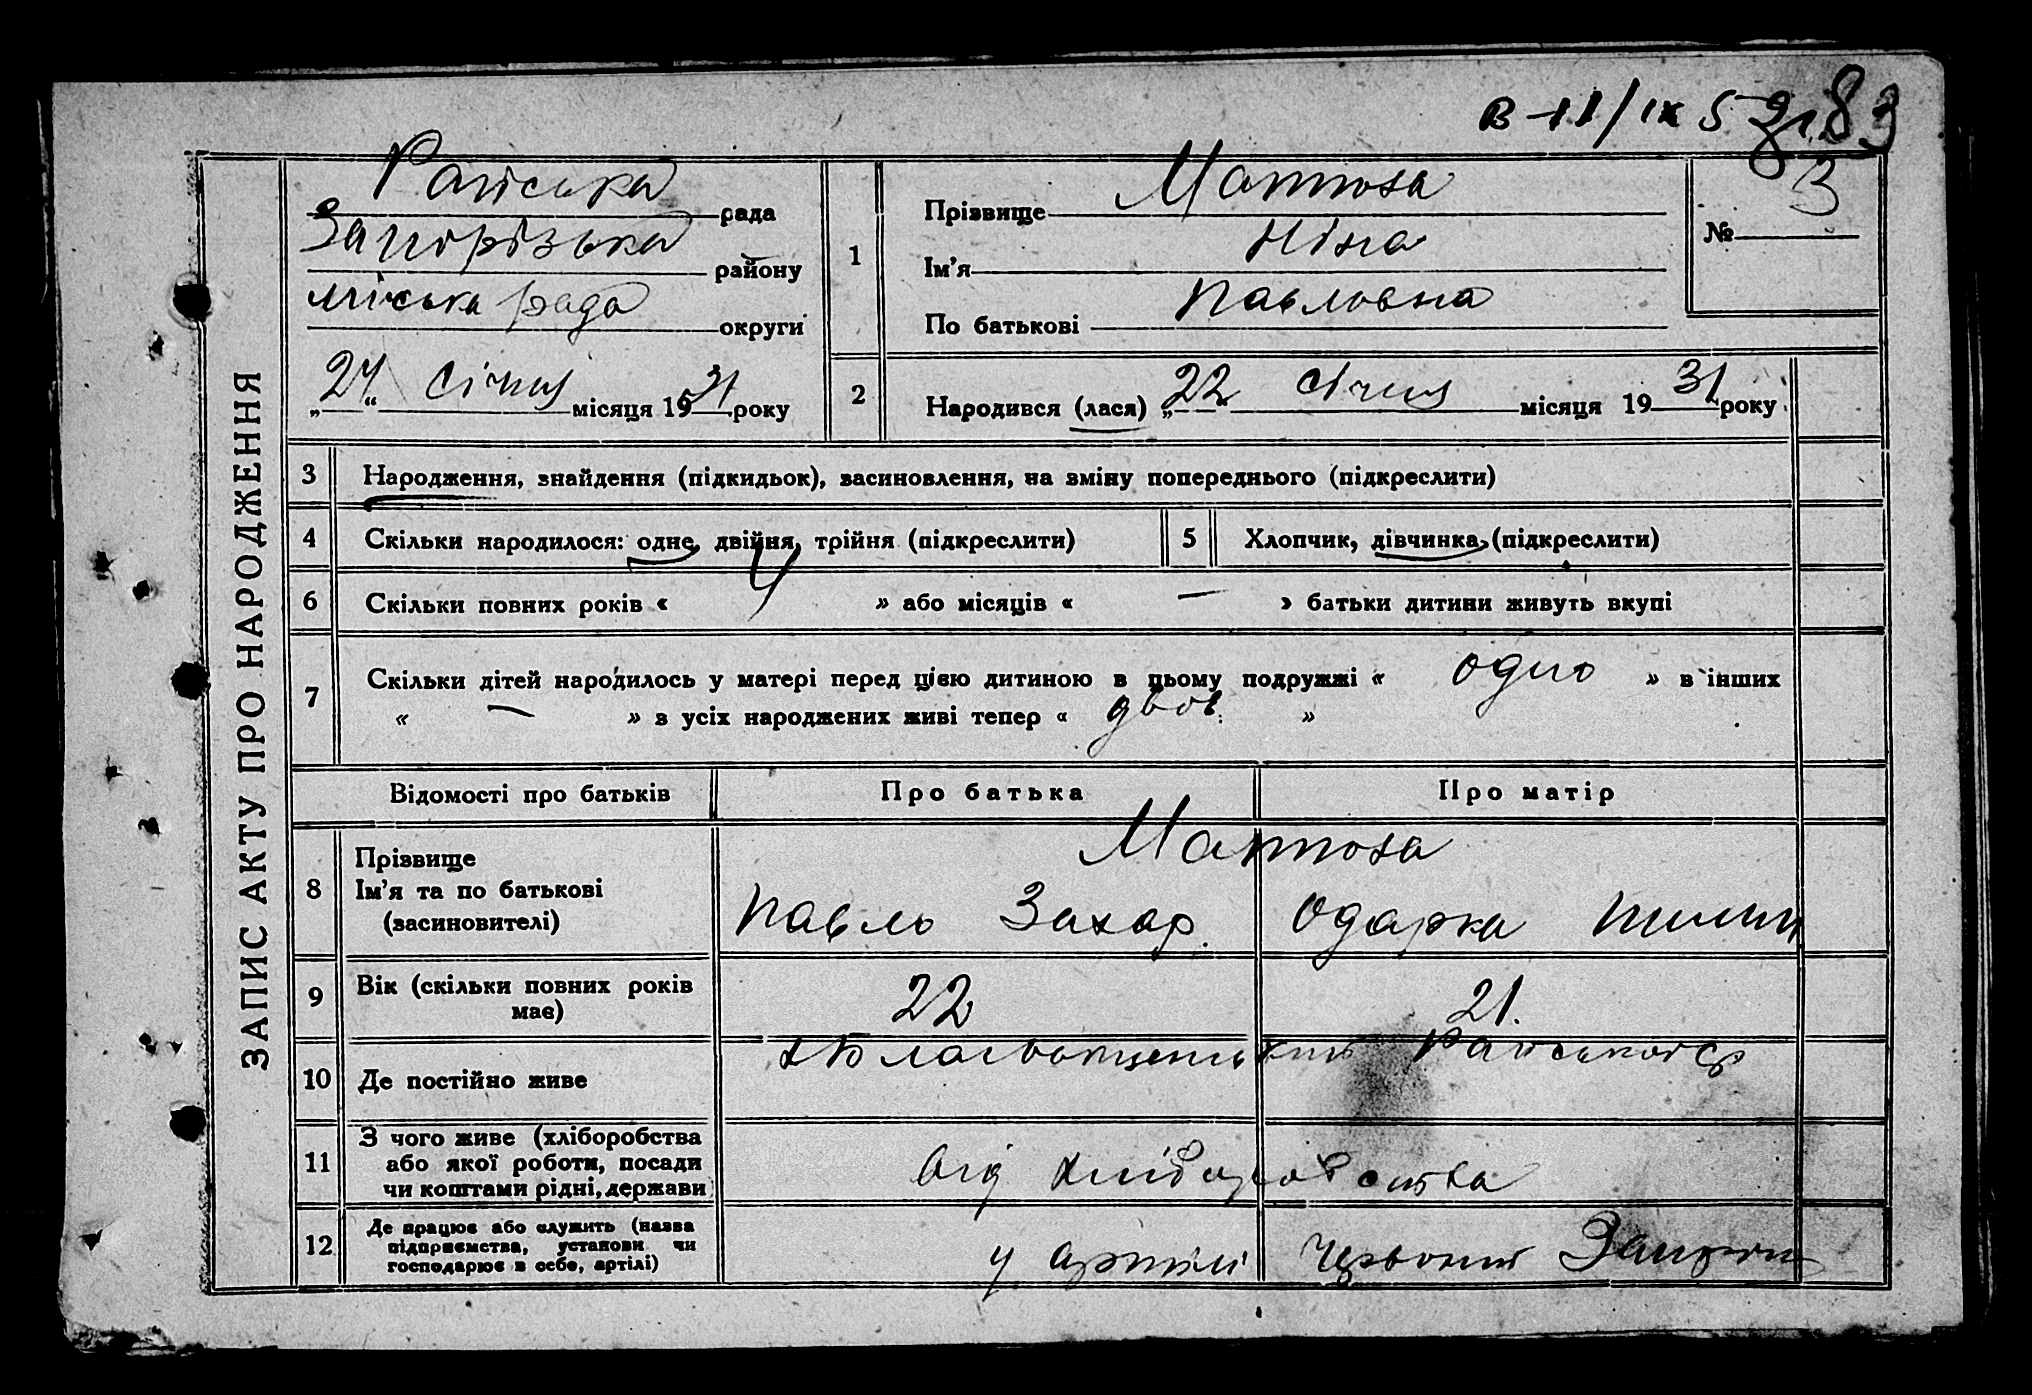 в 11/IX 5
83
ЗАПИС АКТУ ПРО НАРОДЖЕННЯ
Райська рада
Запорізька району
міська рада округи
„24“ січня місяця 1931 року
1
Прізвище Матюха
Ім'я Ніна
По батькові Павловна
№ 3
2
Народився (лася) „22“ січня місяця 1931 року
3 Народження, знайдення (підкидьок), засиновлення, на зміну попереднього (підкреслити)
4 Скільки народилося: одне, двійня, трійня (підкреслити) 5 Хлопчик, дівчинка, (підкреслити)
6 Скільки повних років « 4 » або місяців « — » батьки дитини живуть вкупі
7 Скільки дітей народилось у матері перед цією дитиною в цьому подружжі « одно » в інших
« — » з усіх народжених живі тепер « двоє »
Відомості про батьків Про батька Про матір
8 Прізвище
Ім'я та по батькові
(засиновителі)
Матюха
Павло Захар. Одарка Пилип
9 Вік (скільки повних років має) 22 21.
10 Де постійно живе х Благовіщенський Райської ср
11 З чого живе (хліборобства
або якої роботи, посади
чи коштами рідні, держави
від хліборобства
12 Де працює або служить (назва
підприємства, установи чи
господарює в себе, артілі)
у артілі Червоний